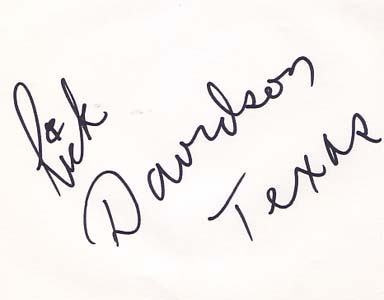 Rick
Davidson
Texas